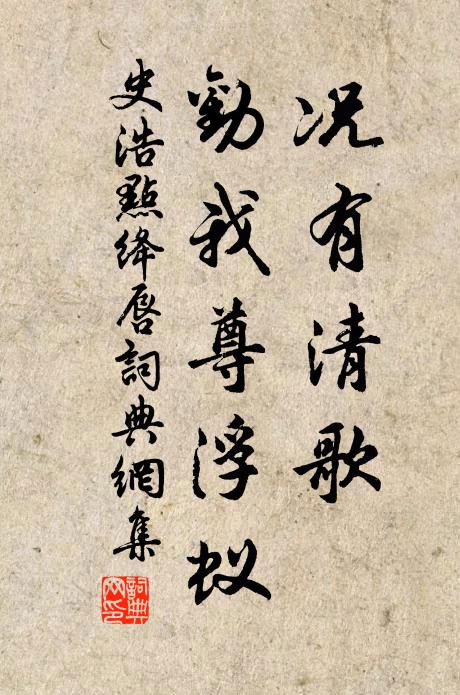 况有清歌
勸我尊浮蚁
史浩點绛唇詞典網集
詞典网印